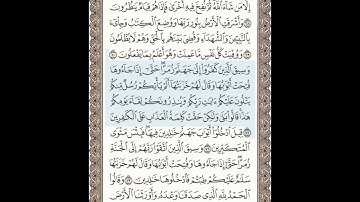 إِلَّا مَن شَآءَ ٱللَّهُ ثُمَّ نُفِخَ فِيهِ أُخۡرَىٰ فَإِذَا هُمۡ قِيَامٞ يَنظُرُونَ
۝ وَأَشۡرَقَتِ ٱلۡأَرۡضُ بِنُورِ رَبِّهَا وَوُضِعَ ٱلۡكِتَٰبُ وَجِاْيٓءَ
بِٱلنَّبِيِّـۧنَ وَٱلشُّهَدَآءِ وَقُضِيَ بَيۡنَهُم بِٱلۡحَقِّ وَهُمۡ لَا يُظۡلَمُونَ
۝ وَوُفِّيَتۡ كُلُّ نَفۡسٖ مَّا عَمِلَتۡ وَهُوَ أَعۡلَمُ بِمَا يَفۡعَلُونَ
۝ وَسِيقَ ٱلَّذِينَ كَفَرُوٓاْ إِلَىٰ جَهَنَّمَ زُمَرًاۖ حَتَّىٰٓ إِذَا جَآءُوهَا
فُتِحَتۡ أَبۡوَٰبُهَا وَقَالَ لَهُمۡ خَزَنَتُهَآ أَلَمۡ يَأۡتِكُمۡ رُسُلٞ مِّنكُمۡ
يَتۡلُونَ عَلَيۡكُمۡ ءَايَٰتِ رَبِّكُمۡ وَيُنذِرُونَكُمۡ لِقَآءَ يَوۡمِكُمۡ
هَٰذَاۚ قَالُواْ بَلَىٰ وَلَٰكِنۡ حَقَّتۡ كَلِمَةُ ٱلۡعَذَابِ عَلَى ٱلۡكَٰفِرِينَ
۝ قِيلَ ٱدۡخُلُوٓاْ أَبۡوَٰبَ جَهَنَّمَ خَٰلِدِينَ فِيهَاۖ فَبِئۡسَ مَثۡوَى
ٱلۡمُتَكَبِّرِينَ ۝ وَسِيقَ ٱلَّذِينَ ٱتَّقَوۡاْ رَبَّهُمۡ إِلَى ٱلۡجَنَّةِ
زُمَرًاۖ حَتَّىٰٓ إِذَا جَآءُوهَا وَفُتِحَتۡ أَبۡوَٰبُهَا وَقَالَ لَهُمۡ خَزَنَتُهَا
سَلَٰمٌ عَلَيۡكُمۡ طِبۡتُمۡ فَٱدۡخُلُوهَا خَٰلِدِينَ ۝ وَقَالُواْ
ٱلۡحَمۡدُ لِلَّهِ ٱلَّذِي صَدَقَنَا وَعۡدَهُۥ وَأَوۡرَثَنَا ٱلۡأَرۡضَ